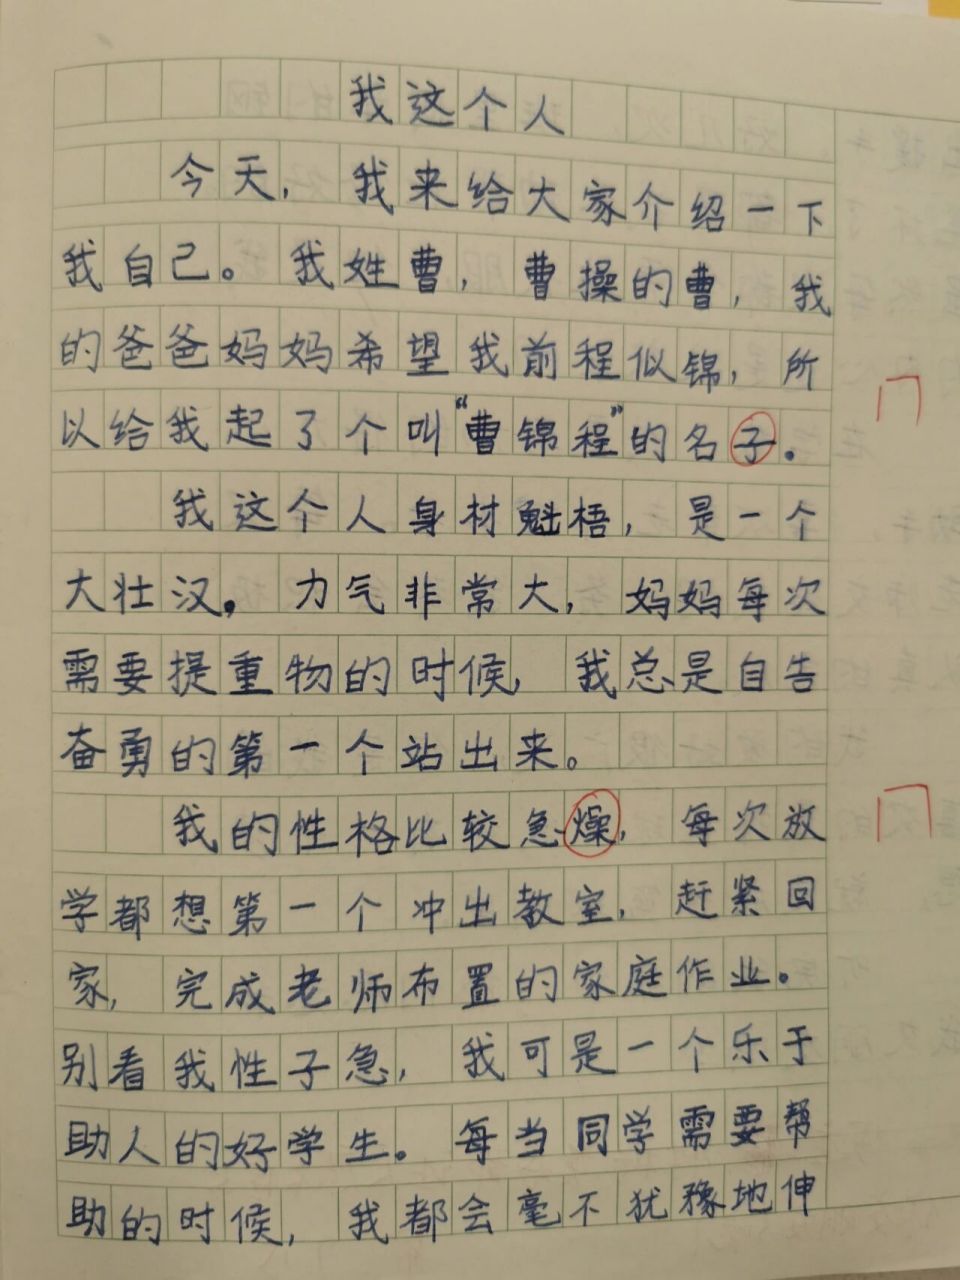 我这个人
今天，我来给大家介绍一下
我自己。我姓曹，曹操的曹，我
的爸爸妈妈希望我前程似锦，所
以给我起了个叫“曹锦程”的名子。
我这个人身材魁梧，是一个
大壮汉，力气非常大，妈妈每次
需要提重物的时候，我总是自告
奋勇的第一个站出来。
我的性格比较急燥，每次放
学都想第一个冲出教室，赶紧回
家，完成老师布置的家庭作业。
别看我性子急，我可是一个乐于
助人的好学生。每当同学需要帮
助的时候，我都会毫不犹豫地伸